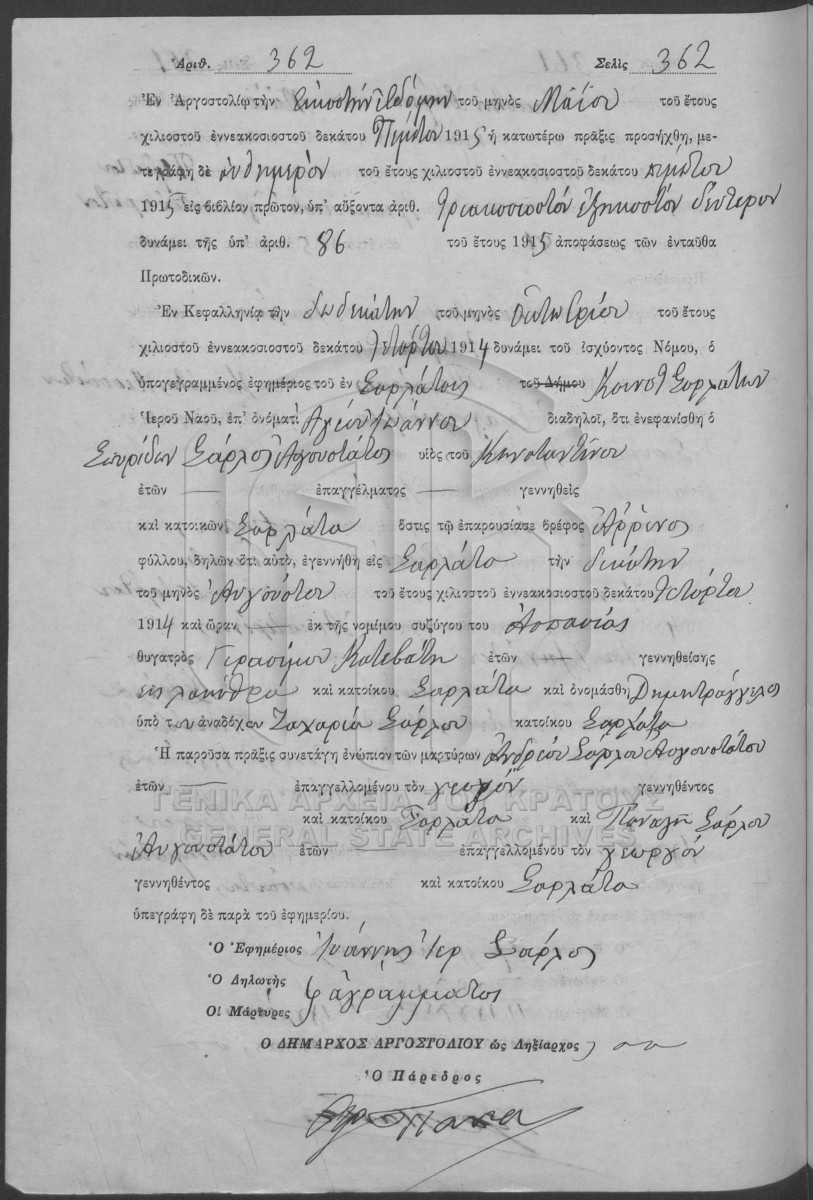 Ἀριθ. 362 Σελὶς 362
Ἐν Ἀργοστολίῳ τὴν Εἰκοστὴν ἑβδόμην τοῦ μηνὸς Μαΐου τοῦ ἔτους
χιλιοστοῦ ἐννεακοσιοστοῦ δεκάτου Πέμπτου 1915 ἡ κατωτέρω πρᾶξις προσήχθη, με-
τεγράφη δὲ αὐθημερὸν τοῦ ἔτους χιλιοστοῦ ἐννεακοσιοστοῦ δεκάτου πέμπτου
1915 εἰς βιβλίον πρῶτον, ὑπ' αὔξοντα ἀριθ. τριακοσιοστόν ἑξηκοστόν δεύτερον
δυνάμει τῆς ὑπ' ἀριθ. 86 τοῦ ἔτους 1915 ἀποφάσεως τῶν ἐνταῦθα
Πρωτοδικῶν.
Ἐν Κεφαλληνίᾳ τὴν δωδεκάτην τοῦ μηνὸς Ὀκτωβρίου τοῦ ἔτους
χιλιοστοῦ ἐννεακοσιοστοῦ δεκάτου τετάρτου 1914 δυνάμει τοῦ ἰσχύοντος Νόμου, ὁ
ὑπογεγραμμένος ἐφημέριος τοῦ ἐν Σαρλάτοις τοῦ Δήμου Κοινοτ Σαρλάτων
Ἱεροῦ Ναοῦ, ἐπ' ὀνόματι Ἁγίου Ἰωάννου διαδηλοῖ, ὅτι ἐνεφανίσθη ὁ
Σπυρίδων Σάρλος Αὐγουστάτος υἱὸς τοῦ Κωνσταντίνου
ἐτῶν — ἐπαγγέλματος — γεννηθεὶς
καὶ κατοικῶν Σαρλάτα ὅστις τῷ ἐπαρουσίασε βρέφος Ἄρρενος
φύλλου, δηλῶν ὅτι αὐτὸ, ἐγεννήθη εἰς Σαρλάτα τὴν δεκάτην
τοῦ μηνὸς Αὐγούστου τοῦ ἔτους χιλιοστοῦ ἐννεακοσιοστοῦ δεκάτου τετάρτου
1914 καὶ ὥραν — ἐκ τῆς νομίμου συζύγου του Ἀσπασίας
θυγατρὸς Γερασίμου Κατεβάτη ἐτῶν — γεννηθείσης
εἰς Λακήθρα καὶ κατοίκου Σαρλάτα καὶ ὀνομάσθη Δημητράγγελος
ὑπὸ τῶν ἀναδόχων Ζαχαρία Σάρλου κατοίκου Σαρλάτα
Ἡ παροῦσα πρᾶξις συνετάγη ἐνώπιον τῶν μαρτύρων Ἀνδρέου Σάρλου Αὐγουστάτου
ἐτῶν — ἐπαγγελλομένου τὸν γεωργόν γεννηθέντος
καὶ κατοίκου Σαρλάτα καὶ Παναγῆ Σάρλου
Αὐγουστάτου ἐτῶν — ἐπαγγελλομένου τὸν γεωργόν
γεννηθέντος καὶ κατοίκου Σαρλάτα
ὑπεγράφη δὲ παρὰ τοῦ ἐφημερίου.
Ὁ Ἐφημέριος Ἰωάννης Ἱερ Σάρλος
Ὁ Δηλωτὴς ἀγράμματος
Οἱ Μάρτυρες
Ὁ ΔΗΜΑΡΧΟΣ ΑΡΓΟΣΤΟΛΙΟΥ ὡς Ληξίαρχος
Ὁ Πάρεδρος
ΓΕΝΙΚΑ ΑΡΧΕΙΑ ΤΟΥ ΚΡΑΤΟΥΣ
GENERAL STATE ARCHIVES